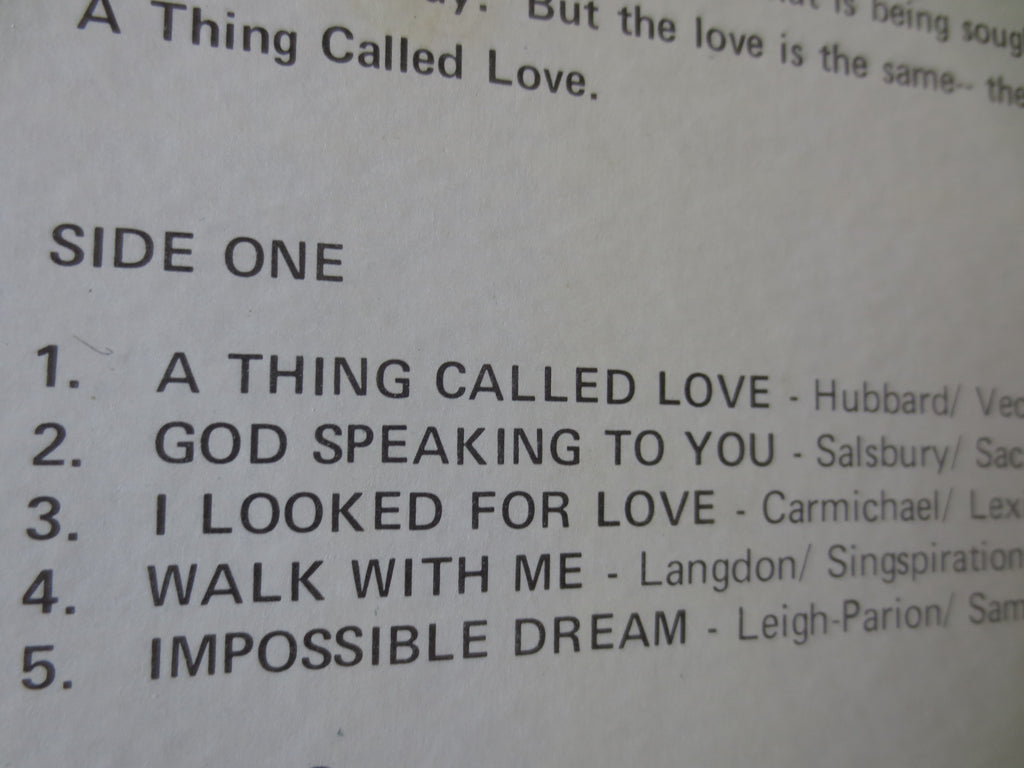 is being
But the love is the same-- the
A Thing Called Love.
SIDE ONE
1. A THING CALLED LOVE - Hubbard/
2. GOD SPEAKING TO YOU - Salsbury/
3. I LOOKED FOR LOVE - Carmichael/ Lex
4. WALK WITH ME - Langdon/ Singspiration
5. IMPOSSIBLE DREAM - Leigh-Parion/ Sam